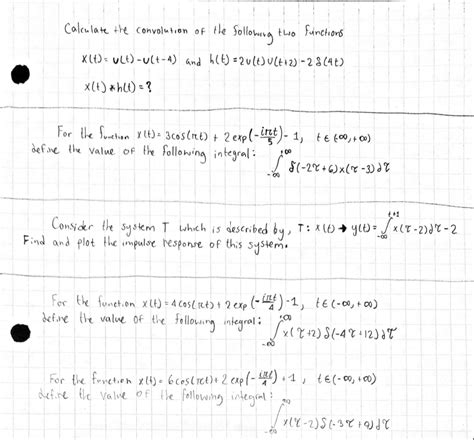 Calculate the convolution of the following two functions
x(t) = u(t) - u(t-4) and h(t) = 2u(t)u(t+2) - 2δ(4t)
x(t) * h(t) = ?
For the function x(t) = 3cos(πt) + 2exp(-iπt/5) - 1, t∈(-∞,+∞)
define the value of the following integral: ∫_{-∞}^{+∞} δ(-2τ+6)x(τ-3)dτ
Consider the system T which is described by, T: x(t) → y(t) = ∫_{-∞}^{t+1} x(τ-2)dτ - 2
Find and plot the impulse response of this system.
For the function x(t) = 4cos(πt) + 2exp(-iπt/4) - 1, t∈(-∞,+∞)
define the value of the following integral: ∫_{-∞}^{+∞} x(τ+2)δ(-4τ+12)dτ
For the function x(t) = 6cos(πt) + 2exp(-iπt/4) + 1, t∈(-∞,+∞)
define the value of the following integral: ∫_{-∞}^{∞} x(τ-2)δ(-3τ+9)dτ